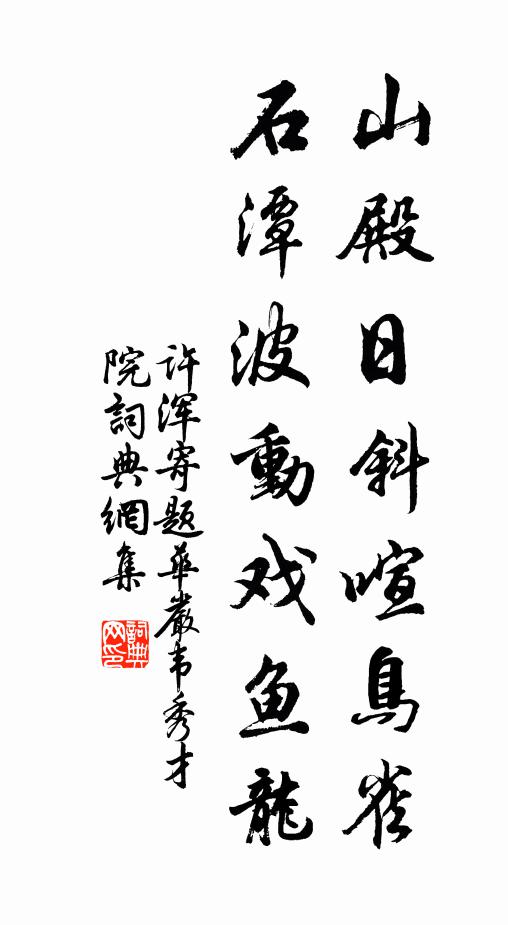 山殿日斜喧鳥雀
石潭波動戏鱼龍
许渾寄题華嚴韦秀才
院詞典網集
詞典
网印